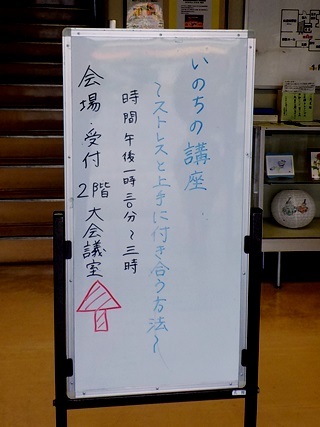 いのちの講座
～ストレスと上手に付き合う方法～
時間 午後一時三〇分～三時
会場・受付 2階 大会議室